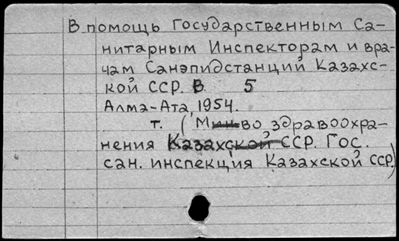 В помощь Государственным Са-
нитарным Инспекторам и вра-
чам Санэпидстанций Казахс-
кой ССР. В. 5
Алма-Ата, 1954.
т. (Мин-во здравоохра-
нения Казахской ССР. Гос.
сан. инспекция Казахской ССР)